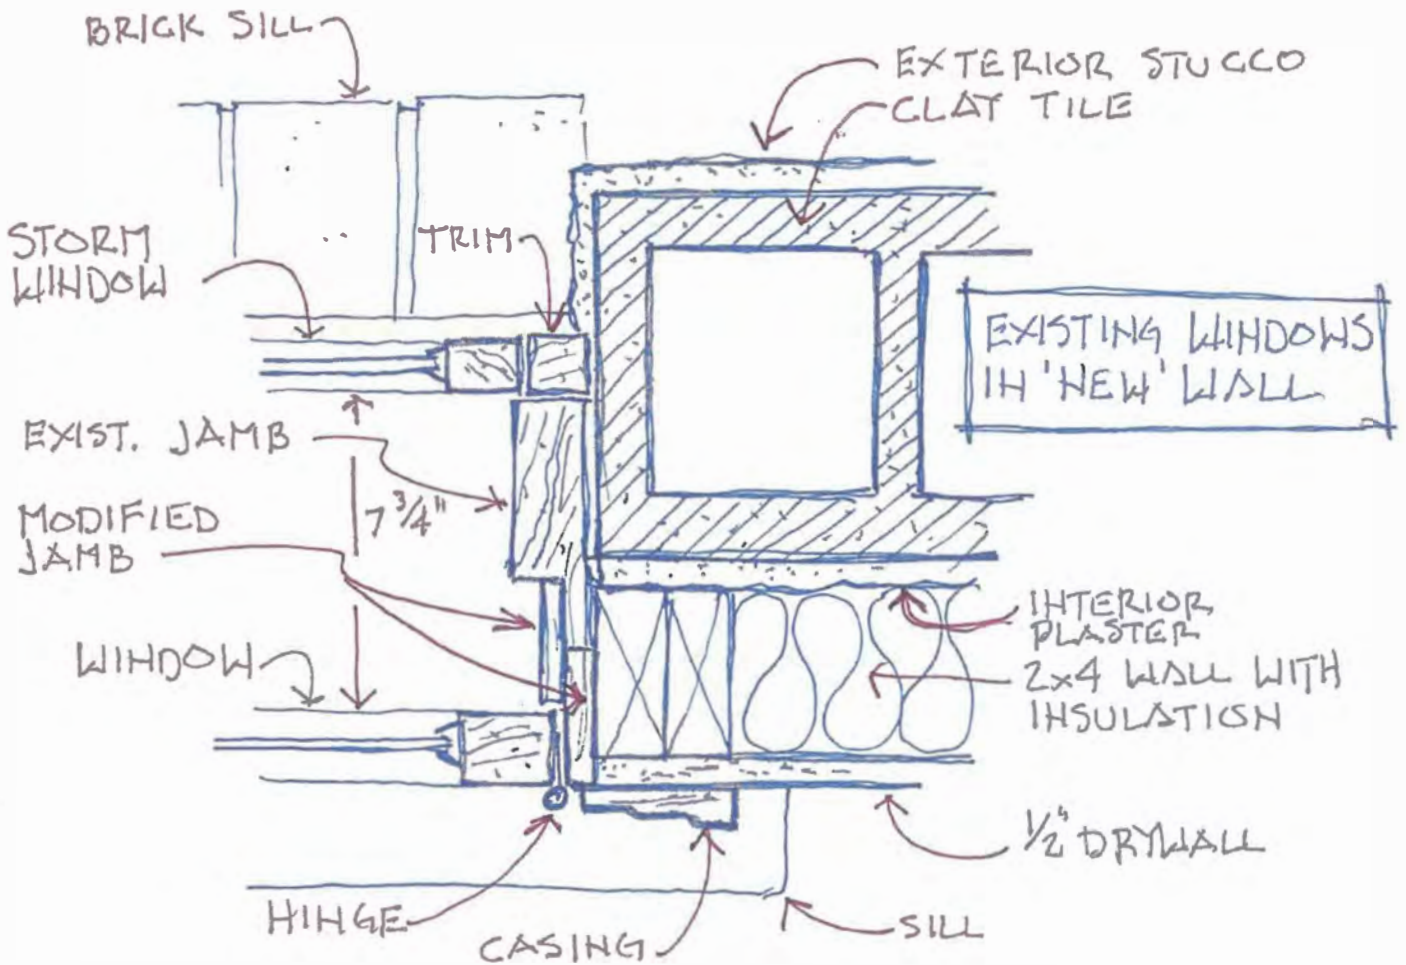 BRICK SILL
EXTERIOR STUCCO
CLAY TILE
STORM
WINDOW
TRIM
EXISTING WINDOWS
IN 'NEW' WALL
EXIST. JAMB
7 3/4"
MODIFIED
JAMB
INTERIOR
PLASTER
WINDOW
2x4 WALL WITH
INSULATION
1/2" DRYWALL
HINGE
CASING
SILL